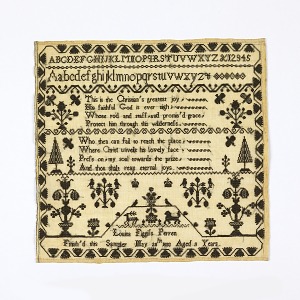 ABCDEFGHIJKLMNOPQRSTUVWXYZ&12345
Aabcdefghijklmnopqrstuvwxyz
This is the Christian's greatest joy
His faithful God is ever nigh
Whose rod and staff and promis'd grace
Protect him through this wilderness
Who then can fail to reach the place
Where Christ unveils his lovely face
Press on my soul towards the prize
And thou shalt reap eternal joys
Louisa Pierren
Finish'd this Sampler May Aged 8 Years